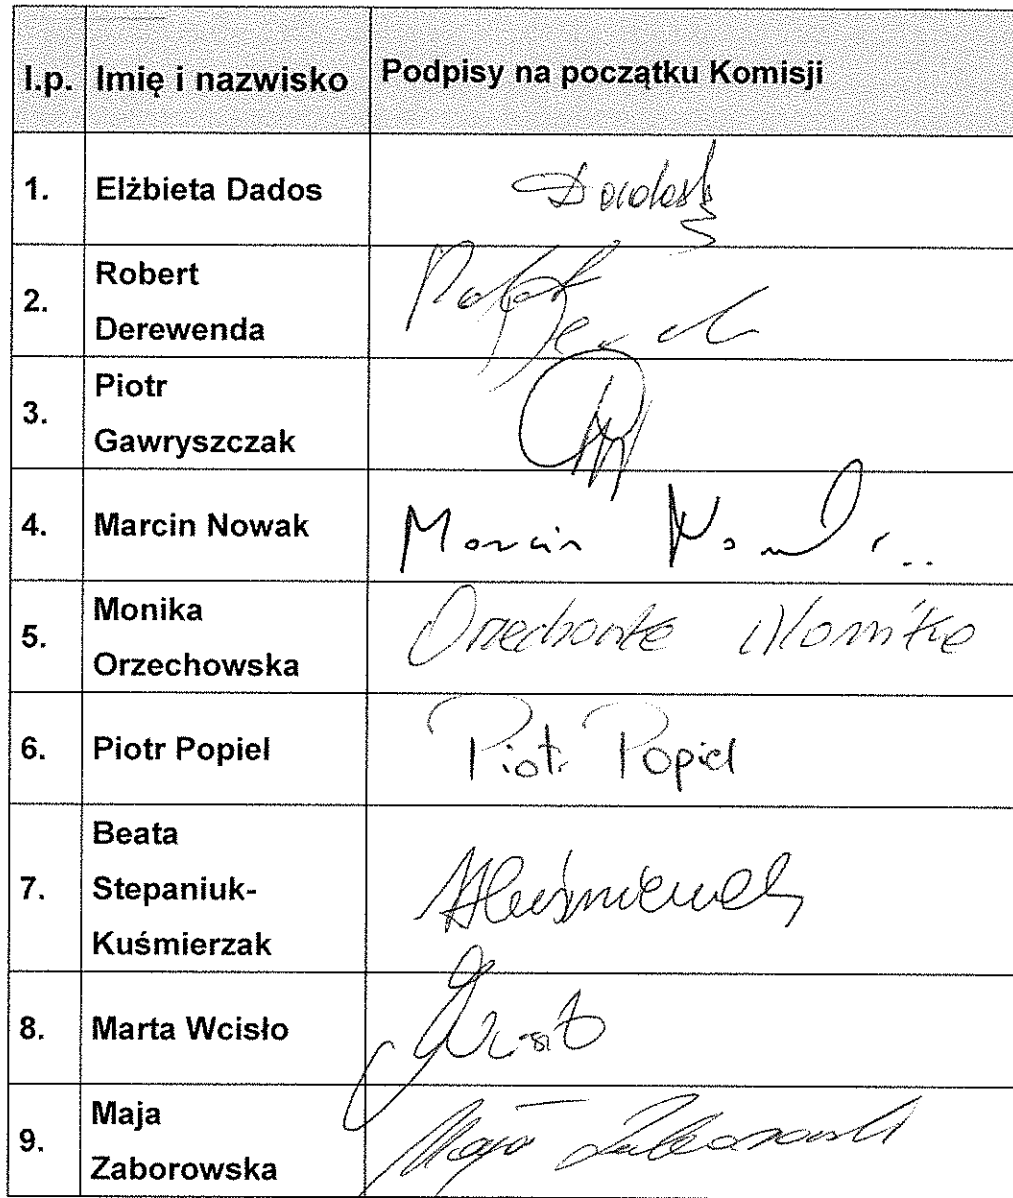 l.p. Imię i nazwisko Podpisy na początku Komisji
1. Elżbieta Dados
2. Robert
Derewenda
3. Piotr
Gawryszczak
4. Marcin Nowak Marcin Nowak
5. Monika
Orzechowska
6. Piotr Popiel Piotr Popiel
7. Beata
Stepaniuk-
Kuśmierzak
8. Marta Wcisło
9. Maja
Zaborowska